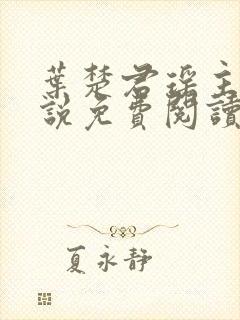 葉楚君瑤主
說免費閱讀
夏永靜